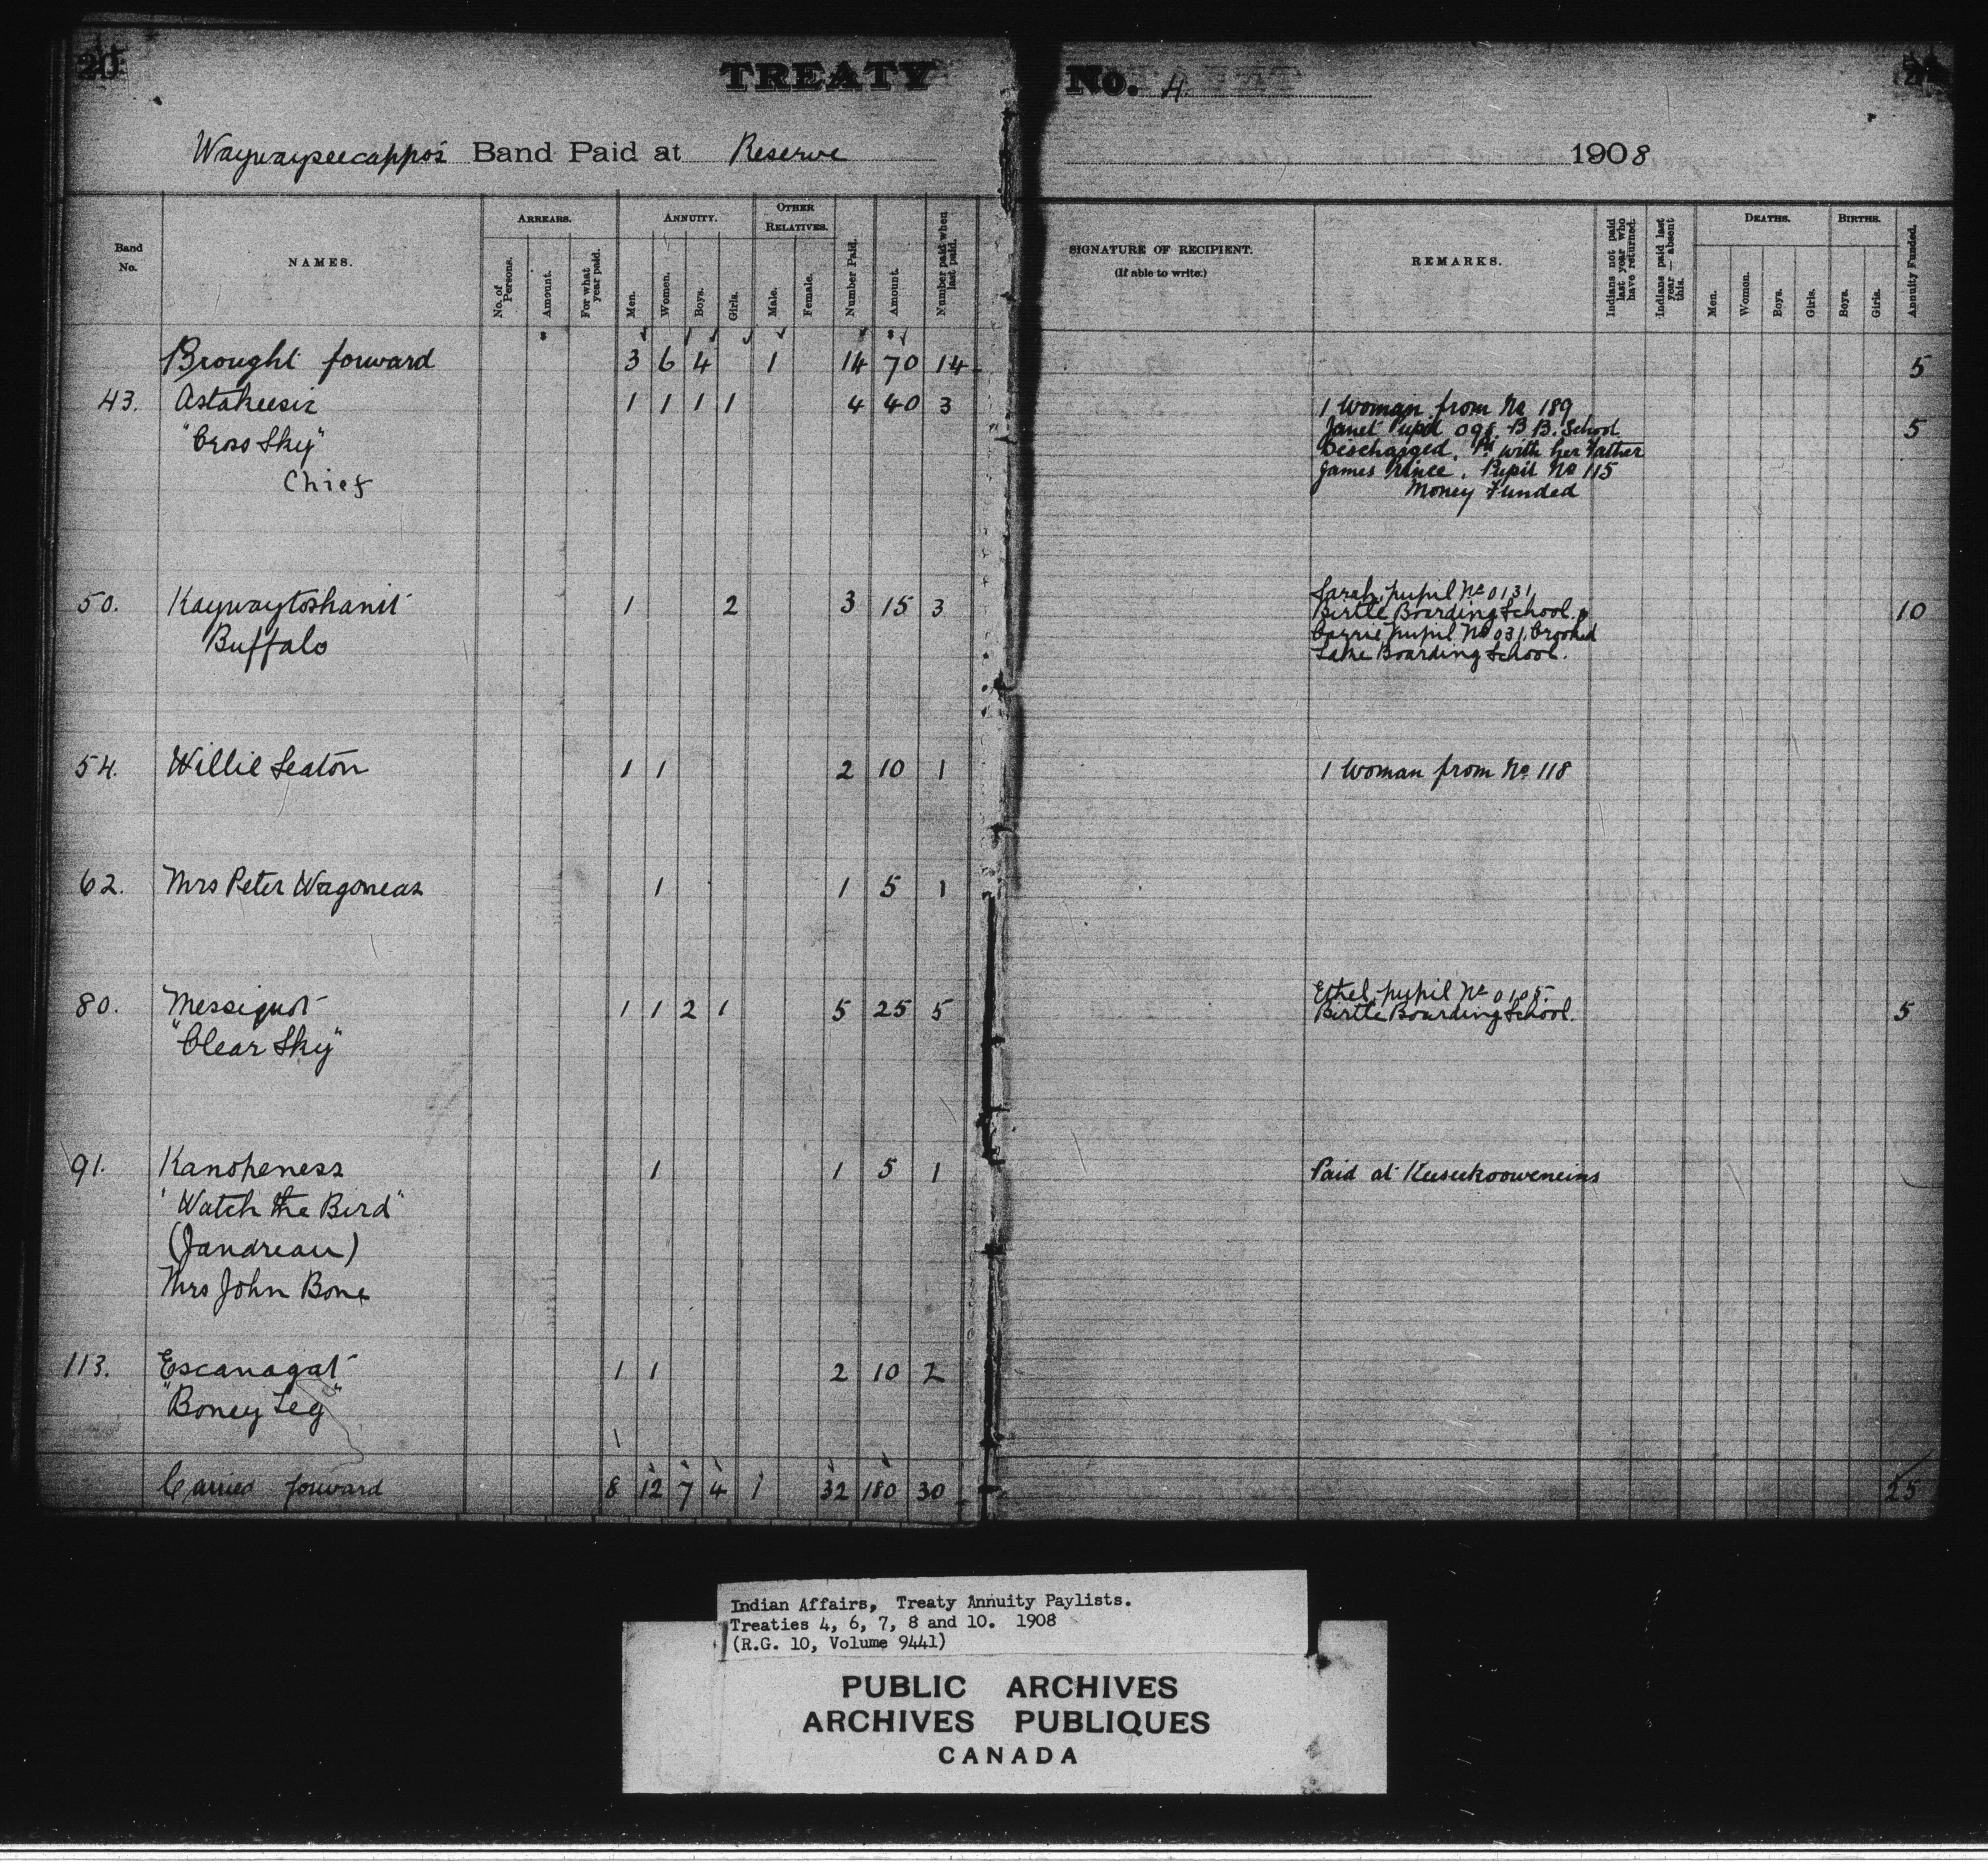 20
TREATY No. 4
Waywayseecappo's Band Paid at Reserve 1908
Band No.
NAMES.
ARREARS.
No. of Persons.
Amount.
For what year paid.
ANNUITY.
Men.
Women.
Boys.
Girls.
OTHER RELATIVES.
Male.
Female.
Number Paid.
Amount.
Number paid when last paid.
SIGNATURE OF RECIPIENT.
(If able to write.)
REMARKS.
Indians not paid last year who have returned.
Indians paid last year — absent this.
DEATHS.
Men.
Women.
Boys.
Girls.
BIRTHS.
Boys.
Girls.
Annuity Funded.
Brought forward 3 6 4 1 14 70 14 5
43. Astakeesic 1 1 1 1 4 40 3 5
"Cross Sky"
Chief
1 Woman from No 189
Janet Pupil 098 B B. School
Discharged. Pd with her Father
James Prince. Pupil No 115
Money Funded
50. Kaywaytoshanit 1 2 3 15 3 10
Buffalo
Sarah, pupil No 0131
Birtle Boarding School.
Carrie, pupil No 031, Crooked
Lake Boarding School.
54. Willie Seaton 1 1 2 10 1 1 Woman from No 118
62. Mrs Peter Wagoneas 1 1 5 1
80. Messiquot 1 1 2 1 5 25 5 5
"Clear Sky"
Ethel, pupil No 0105.
Birtle Boarding School.
91. Kanoheness 1 1 5 1 Paid at Keeseekooweneins
"Watch the Bird"
(Jandreau)
Mrs John Bone
113. Escanagat 1 1 2 10 2
"Boney Leg"
Carried forward 8 12 7 4 1 32 180 30 25
Indian Affairs, Treaty Annuity Paylists.
Treaties 4, 6, 7, 8 and 10. 1908
(R.G. 10, Volume 9441)
PUBLIC ARCHIVES
ARCHIVES PUBLIQUES
CANADA